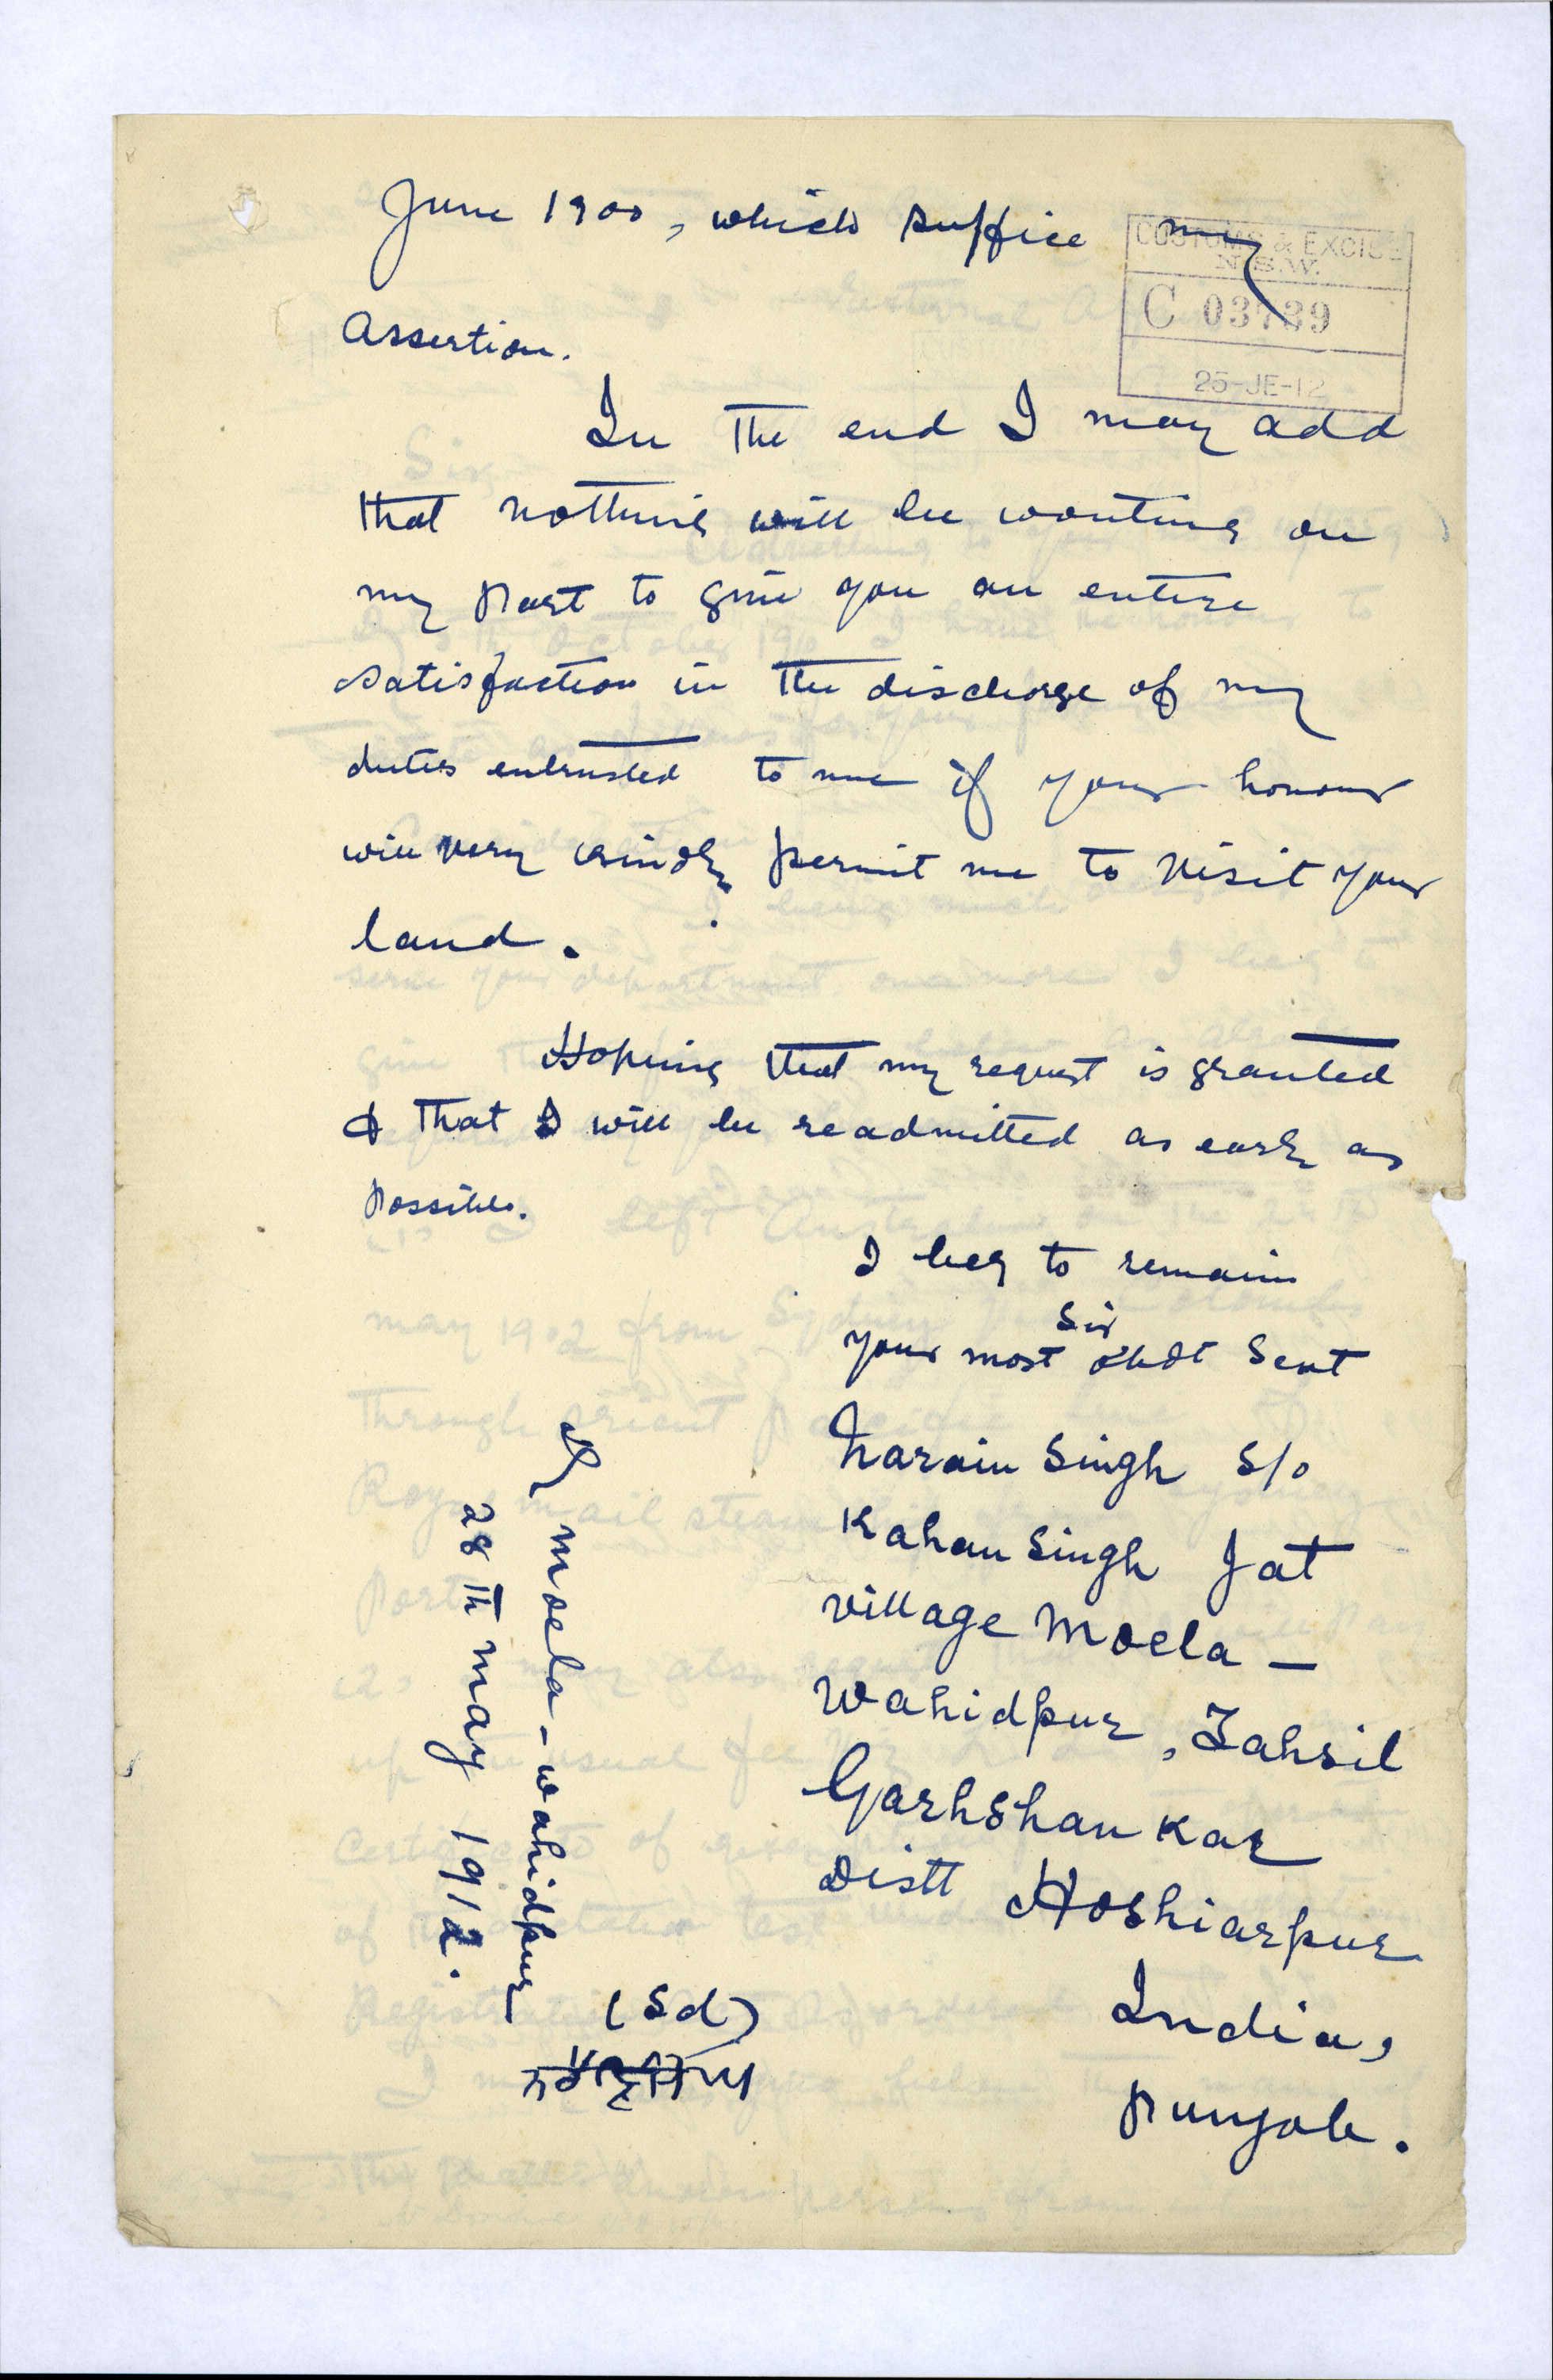 June 1900, which suffice my
assertion.
CUSTOMS & EXCISE
N.S.W.
C 03739
25-JE-12
In the end I may add
that nothing will be wanting on
my part to give you an entire
satisfaction in the discharge of my
duties entrusted to me if your honour
will very kindly permit me to visit your
land.
Hoping that my request is granted
& that I will be readmitted as early as
possible.
I beg to remain
Sir
your most obdt Sevt
Narain Singh S/o
Kahan Singh Jat
village Moela -
Wahidpur, Tahsil
Garhshankar
Distt Hoshiarpur
India,
Punjab.
moela - wahidpur
28th may 1912.
(Sd)